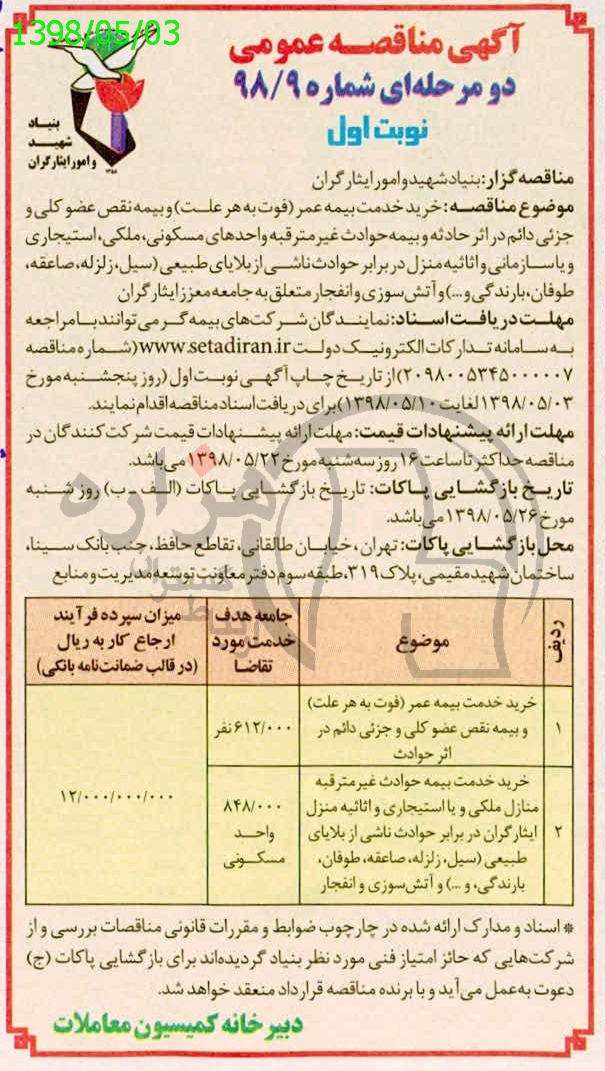 1398/05/03
آگهی مناقصه عمومی
دو مرحله‌ای شماره ۹۸/۹
نوبت اول
بنیاد
شهید
و امور ایثارگران
مناقصه گزار: بنیاد شهید و امور ایثارگران
موضوع مناقصه: خرید خدمت بیمه عمر (فوت به هر علت) و بیمه نقص عضو کلی و
جزئی دائم در اثر حادثه و بیمه حوادث غیر مترقبه واحدهای مسکونی، ملکی، استیجاری
و یا سازمانی و اثاثیه منزل در برابر حوادث ناشی از بلایای طبیعی (سیل، زلزله، صاعقه،
طوفان، بارندگی و...) و آتش‌سوزی و انفجار متعلق به جامعه معزز ایثارگران
مهلت دریافت اسناد: نمایندگان شرکت‌های بیمه‌گر می‌توانند با مراجعه
به سامانه تدارکات الکترونیک دولت www.setadiran.ir (شماره مناقصه
۲۰۹۸۰۰۵۳۴۵۰۰۰۰۰۷) از تاریخ چاپ آگهی نوبت اول (روز پنجشنبه مورخ
۱۳۹۸/۰۵/۰۳ لغایت ۱۳۹۸/۰۵/۱۰) برای دریافت اسناد مناقصه اقدام نمایند.
مهلت ارائه پیشنهادات قیمت: مهلت ارائه پیشنهادات قیمت شرکت کنندگان در
مناقصه حداکثر تا ساعت ۱۶ روز سه شنبه مورخ ۱۳۹۸/۰۵/۲۲ می‌باشد.
تاریخ بازگشایی پاکات: تاریخ بازگشایی پاکات (الف - ب) روز شنبه
مورخ ۱۳۹۸/۰۵/۲۶ می‌باشد.
محل بازگشایی پاکات: تهران، خیابان طالقانی، تقاطع حافظ، جنب بانک سینا،
ساختمان شهید مقیمی، پلاک ۳۱۹، طبقه سوم دفتر معاونت توسعه مدیریت و منابع
ردیف
موضوع
جامعه هدف
خدمت مورد
تقاضا
میزان سپرده فرآیند
ارجاع کار به ریال
(در قالب ضمانت‌نامه بانکی)
۱
خرید خدمت بیمه عمر (فوت به هر علت)
و بیمه نقص عضو کلی و جزئی دائم در
اثر حوادث
۶۱۲/۰۰۰ نفر
۱۲/۰۰۰/۰۰۰/۰۰۰
۲
خرید خدمت بیمه حوادث غیر مترقبه
منازل ملکی و یا استیجاری و اثاثیه منزل
ایثارگران در برابر حوادث ناشی از بلایای
طبیعی (سیل، زلزله، صاعقه، طوفان،
بارندگی، و ...) و آتش‌سوزی و انفجار
۸۴۸/۰۰۰
واحد
مسکونی
* اسناد و مدارک ارائه شده در چارچوب ضوابط و مقررات قانونی مناقصات بررسی و از
شرکت‌هایی که حائز امتیاز فنی مورد نظر بنیاد گردیده‌اند برای بازگشایی پاکات (ج)
دعوت به‌عمل می‌آید و با برنده مناقصه قرارداد منعقد خواهد شد.
دبیرخانه کمیسیون معاملات